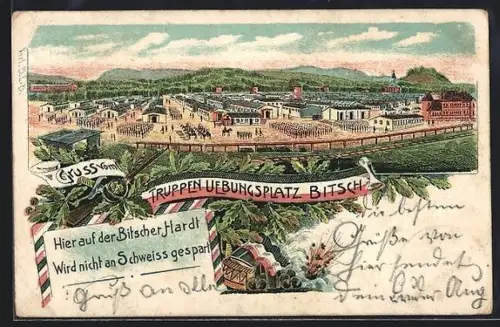 Gruss vom
TRUPPEN UEBUNGSPLATZ BITSCH
Hier auf der Bitscher Hardt
Wird nicht an Schweiss gespart
Die besten
Grüße von
hier sendet
Gruß an alle